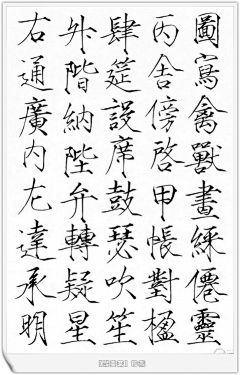 圖寫禽獸畫綵僊靈
丙舍傍啓甲帳對楹
肆筵設席鼓瑟吹笙
升階納陛弁轉疑星
右通廣内左達承明